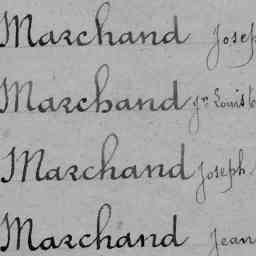 Marchand Josep
Marchand Jn Louis
Marchand Joseph
Marchand Jean